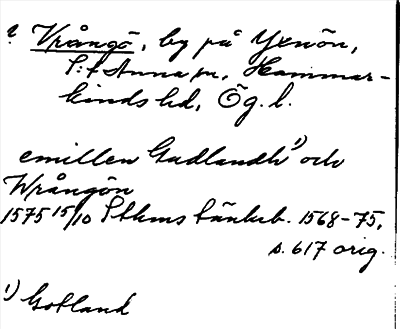 ? Vrångö, by på Yxnön,
S:t Anna sn, Hammar-
kinds hd, Ög. l.
emillen Gudlandh ¹) och
Wrångön
1575 15/10 Sthms tänkeb. 1568-75,
s. 617 orig.
¹) Gotland